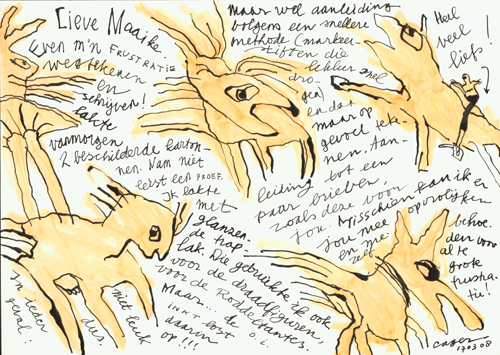 Lieve Maaike.
Even m'n FRUSTRATIE
wegtekenen
en
schrijven!
Lakte
vanmorgen
2 beschilderde karton-
nen. Nam niet
eerst een PROEF.
Ik lakte
met
glanzen-
de trap
lak. Die gebruikte ik ook
voor de draadfiguren,
voor de Roodetaartes.
Maar... de
INKT lost
daarin
op!!!
niet leuk
dus.
In ieder
geval!
Maar wel aanleiding
volgens een snellere
methode (markeer-
stiften die
lekker snel
dro-
gen)
en dan
maar op
gevoel tek-
nen. Aan-
leiding tot een
paar brieven
zoals deze voor
jou. Misschien kan ik er
jou mee opvrolijken
en me
zelf
behoe-
den voor
al te
grote
frustra-
tie!
Heel
veel
liefs!
17 03 08